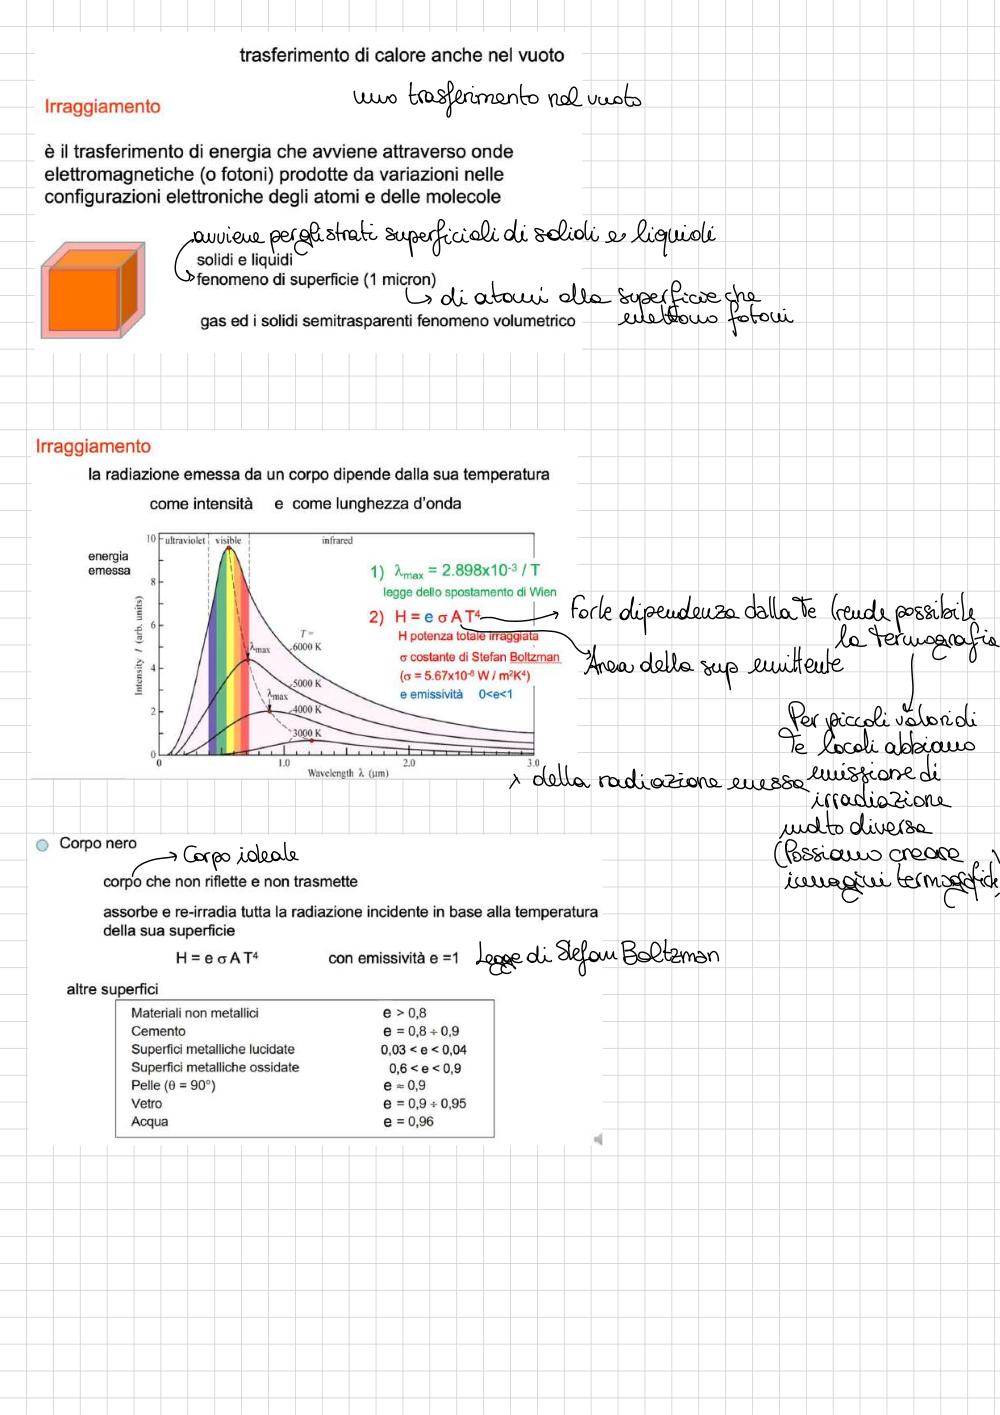 trasferimento di calore anche nel vuoto
uno trasferimento nel vuoto
Irraggiamento
è il trasferimento di energia che avviene attraverso onde
elettromagnetiche (o fotoni) prodotte da variazioni nelle
configurazioni elettroniche degli atomi e delle molecole
avviene per gli strati superficiali di solidi e liquidi
solidi e liquidi
fenomeno di superficie (1 micron)
di atomi alla superficie che
emettono fotoni
gas ed i solidi semitrasparenti fenomeno volumetrico
Irraggiamento
la radiazione emessa da un corpo dipende dalla sua temperatura
come intensità e come lunghezza d'onda
energia
emessa
ultraviolet visible infrared
Intensity I (arb. units)
10
8
6
4
2
0
T =
6000 K
λmax
5000 K
λmax
4000 K
3000 K
0 1.0 2.0 3.0
Wavelength λ (μm)
1) λmax = 2.898x10⁻³ / T
legge dello spostamento di Wien
2) H = e σ A T⁴
H potenza totale irraggiata
σ costante di Stefan Boltzman
(σ = 5.67x10⁻⁸ W / m²K⁴)
e emissività 0<e<1
Forte dipendenza dalla Te (rende possibile
la termografia
Area della sup emittente
Per piccoli valori di
Te locali abbiamo
emissione di
irradiazione
molto diversa
(Possiamo creare
immagini termografiche)
λ della radiazione emessa
Corpo nero
Corpo ideale
corpo che non riflette e non trasmette
assorbe e re-irradia tutta la radiazione incidente in base alla temperatura
della sua superficie
H = e σ A T⁴ con emissività e =1 Legge di Stefan Boltzman
altre superfici
Materiali non metallici e > 0,8
Cemento e = 0,8 ÷ 0,9
Superfici metalliche lucidate 0,03 < e < 0,04
Superfici metalliche ossidate 0,6 < e < 0,9
Pelle (θ = 90°) e ≈ 0,9
Vetro e = 0,9 ÷ 0,95
Acqua e = 0,96